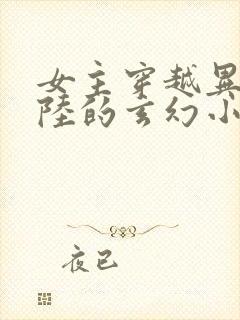 女主穿越異
陸的玄幻小
夜已